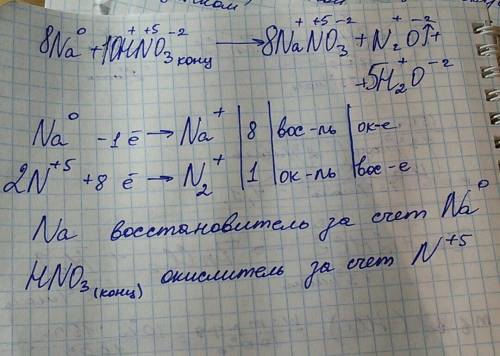 8Na⁰ + 10H⁺N⁺⁵O₃⁻² конц ⟶ 8Na⁺N⁺⁵O₃⁻² + N₂⁺O⁻²↑ +
+ 5H₂⁺O⁻²
Na⁰ - 1ē → Na⁺ | 8 | вос-ль | ок-е
2N⁺⁵ + 8ē → N₂⁺ | 1 | ок-ль | вос-е
Na восстановитель за счет Na⁰
HNO₃(конц) окислитель за счет N⁺⁵